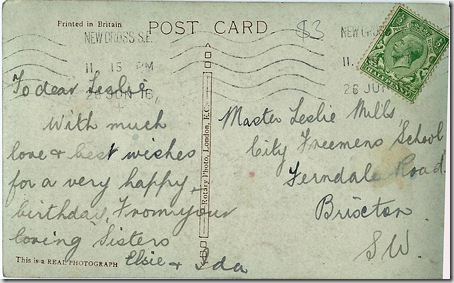 Printed in Britain
POST CARD
$3
NEW CROSS S.E.
11.15 PM
26 JUN 16
NEW CROSS
11.
26 JU
HALFPENNY
To dear Leslie,
With much
love & best wishes
for a very happy
birthday. From your
loving Sisters
Elsie & Ida
This is a REAL PHOTOGRAPH
Rotary Photo, London, E.C.
Master Leslie Mills,
City Freemens School
Ferndale Road
Brixton
S.W.